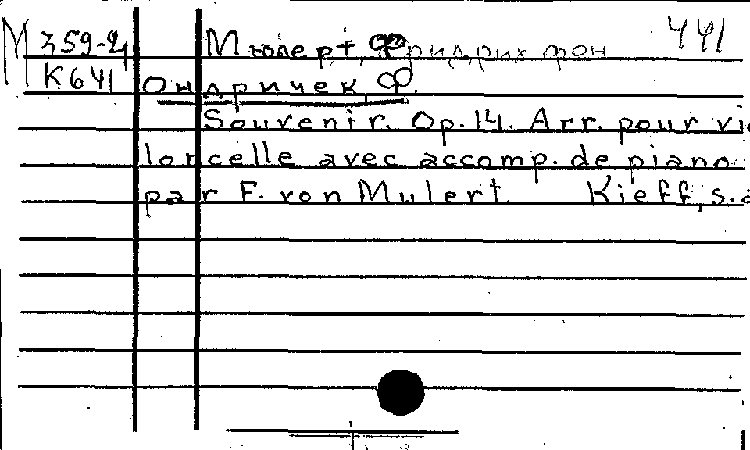 М 359-21 Мюлерт, Фридрих фон 441
К641 Ондричек, Ф.
Souvenir. Op. 14. Arr. pour vio
loncelle avec accomp. de piano
par F. von Mulert. Kieff, s.a